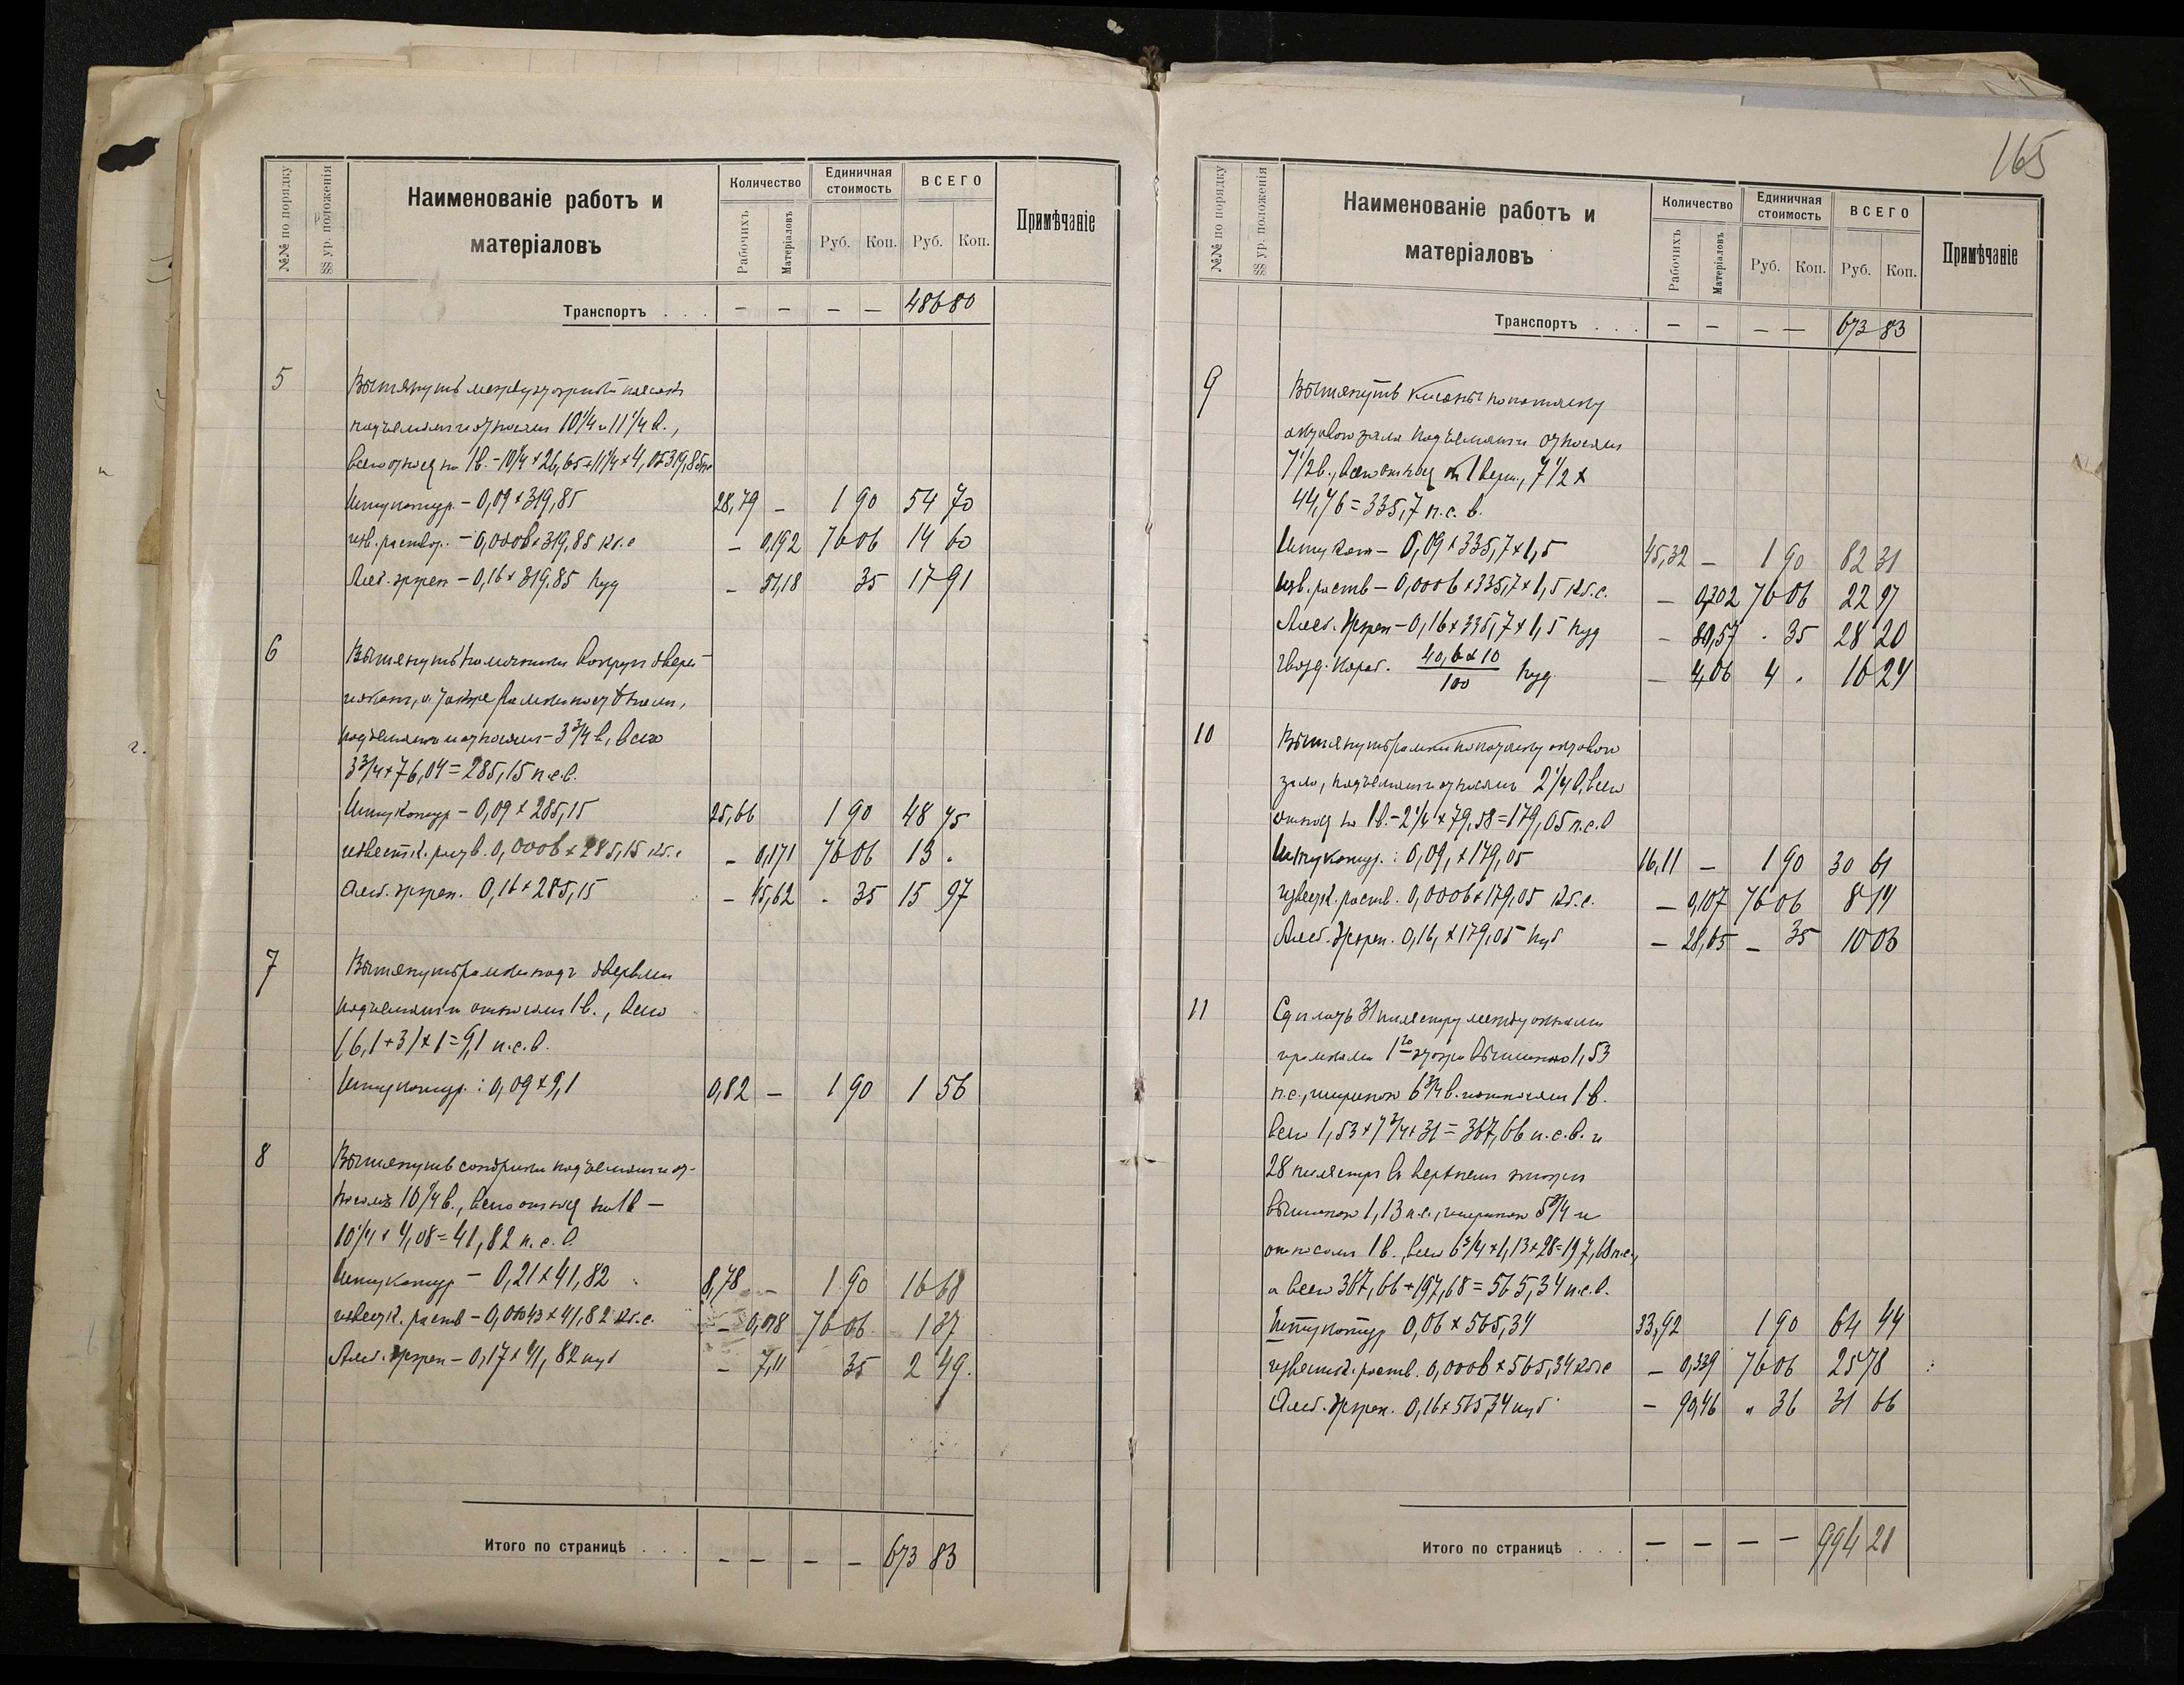 165
№№ по порядку
§§ ур. положенія
Наименованіе работъ и
матеріаловъ
Количество
Рабочихъ
Матеріаловъ
Единичная
стоимость
Руб. Коп.
ВСЕГО
Руб. Коп.
Примѣчаніе
Транспортъ . . . — — — — 486 80
5 Вытянуть междуэтажный поясокъ
подъемомъ и относомъ 10 1/4 и 11 1/4 в.,
всего относа на 1 в. - 10 1/4 × 26,65 + 11 1/4 × 4,05 319,85 п.с
Штукатур. - 0,09 × 319,85 28,79 — 1 90 54 70
изв. раствор. - 0,0006 × 319,85 кб.с — 0,192 76 06 14 60
Алеб. жжен - 0,16 × 319,85 пуд — 51,18 35 17 91
6 Вытянуть наличники вокругъ двери
и оконъ, а также рамки подъ окнами,
подъемомъ и относомъ - 3 3/4 в., всего
3 3/4 × 76,04 = 285,15 п.с.в.
Штукатур - 0,09 × 285,15 25,66 1 90 48 75
известк. раств. 0,0006 × 285,15 кб.с — 0,171 76 06 13 .
Алеб. жжен. 0,16 × 285,15 — 45,62 - 35 15 97
7 Вытянуть рамки надъ дверьми
подъемомъ и относомъ 1 в., всего
(6,1 + 3) × 1 = 9,1 п.с.в.
Штукатур. : 0,09 × 9,1 0,82 — 1 90 1 56
8 Вытянуть сандрики подъемомъ и от-
носомъ 10 1/4 в., всего относа на 1 в —
10 1/4 × 4,08 = 41,82 п.с.в.
Штукатур - 0,21 × 41,82 8,78 — 1 90 16 68
известк. раств - 0,00043 × 41,82 кб.с. — 0,018 76 06 1 37
Алеб. жжен - 0,17 × 41,82 пуд — 7,11 35 2 49.
Итого по страницѣ . . . — — — — 673 83
№№ по порядку
§§ ур. положенія
Наименованіе работъ и
матеріаловъ
Количество
Рабочихъ
Матеріаловъ
Единичная
стоимость
Руб. Коп.
ВСЕГО
Руб. Коп.
Примѣчаніе
Транспортъ . . . — — — — 673 83
9 Вытянуть по потолку
актоваго зала подъемомъ и относомъ
7 1/2 в., всего относа на 1 верш., 7 1/2 ×
44,76 = 335,7 п.с.в.
Штукат - 0,09 × 335,7 × 1,5 45,32 — 1 90 82 31
Изв. раств - 0,0006 × 335,7 × 1,5 кб.с. — 0,302 76 06 22 97
Алеб. жжен - 0,16 × 335,7 × 1,5 пуд — 80,57 . 35 28 20
гвозд. кораб. 40,6 × 10 / 100 пуд. — 4,06 4 . 16 24
10 Вытянуть рамки по потолку актоваго
зала, подъемомъ и относомъ 2 1/4 в., всего
относа на 1 в. - 2 1/4 × 79,58 = 179,05 п.с.в
Штукатур. : 0,09, × 179,05 16,11 — 1 90 30 61
известк. раств. 0,0006 × 179,05 кб.с. — 0,107 76 06 8 14
Алеб. жжен. 0,16, × 179,05 пуд — 28,65 — 35 10 03
11 Сдѣлать 31 пилястру между окнами
1го этажа вышиною 1,53
п.с., шириною 6 3/4 в. и относомъ 1 в.
всего 1,53 × 7 3/4 × 31 = 367,66 п.с.в. и
28 пилястръ въ верхнемъ этажѣ
вышиною 1,13 п.с., шириною 5 3/4 и
относомъ 1 в., всего 6 3/4 × 1,13 × 28 = 197,68 п.с.,
а всего 367,66 + 197,68 = 565,34 п.с.в.
Штукатур 0,06 × 565,34 33,92 1 90 64 44
известк. раств. 0,0006 × 565,34 кб.с — 0,339 76 06 25 78
Алеб. жжен. 0,16 × 565,34 пуд — 90,46 " 36 31 66
Итого по страницѣ . . . — — — — 994 21